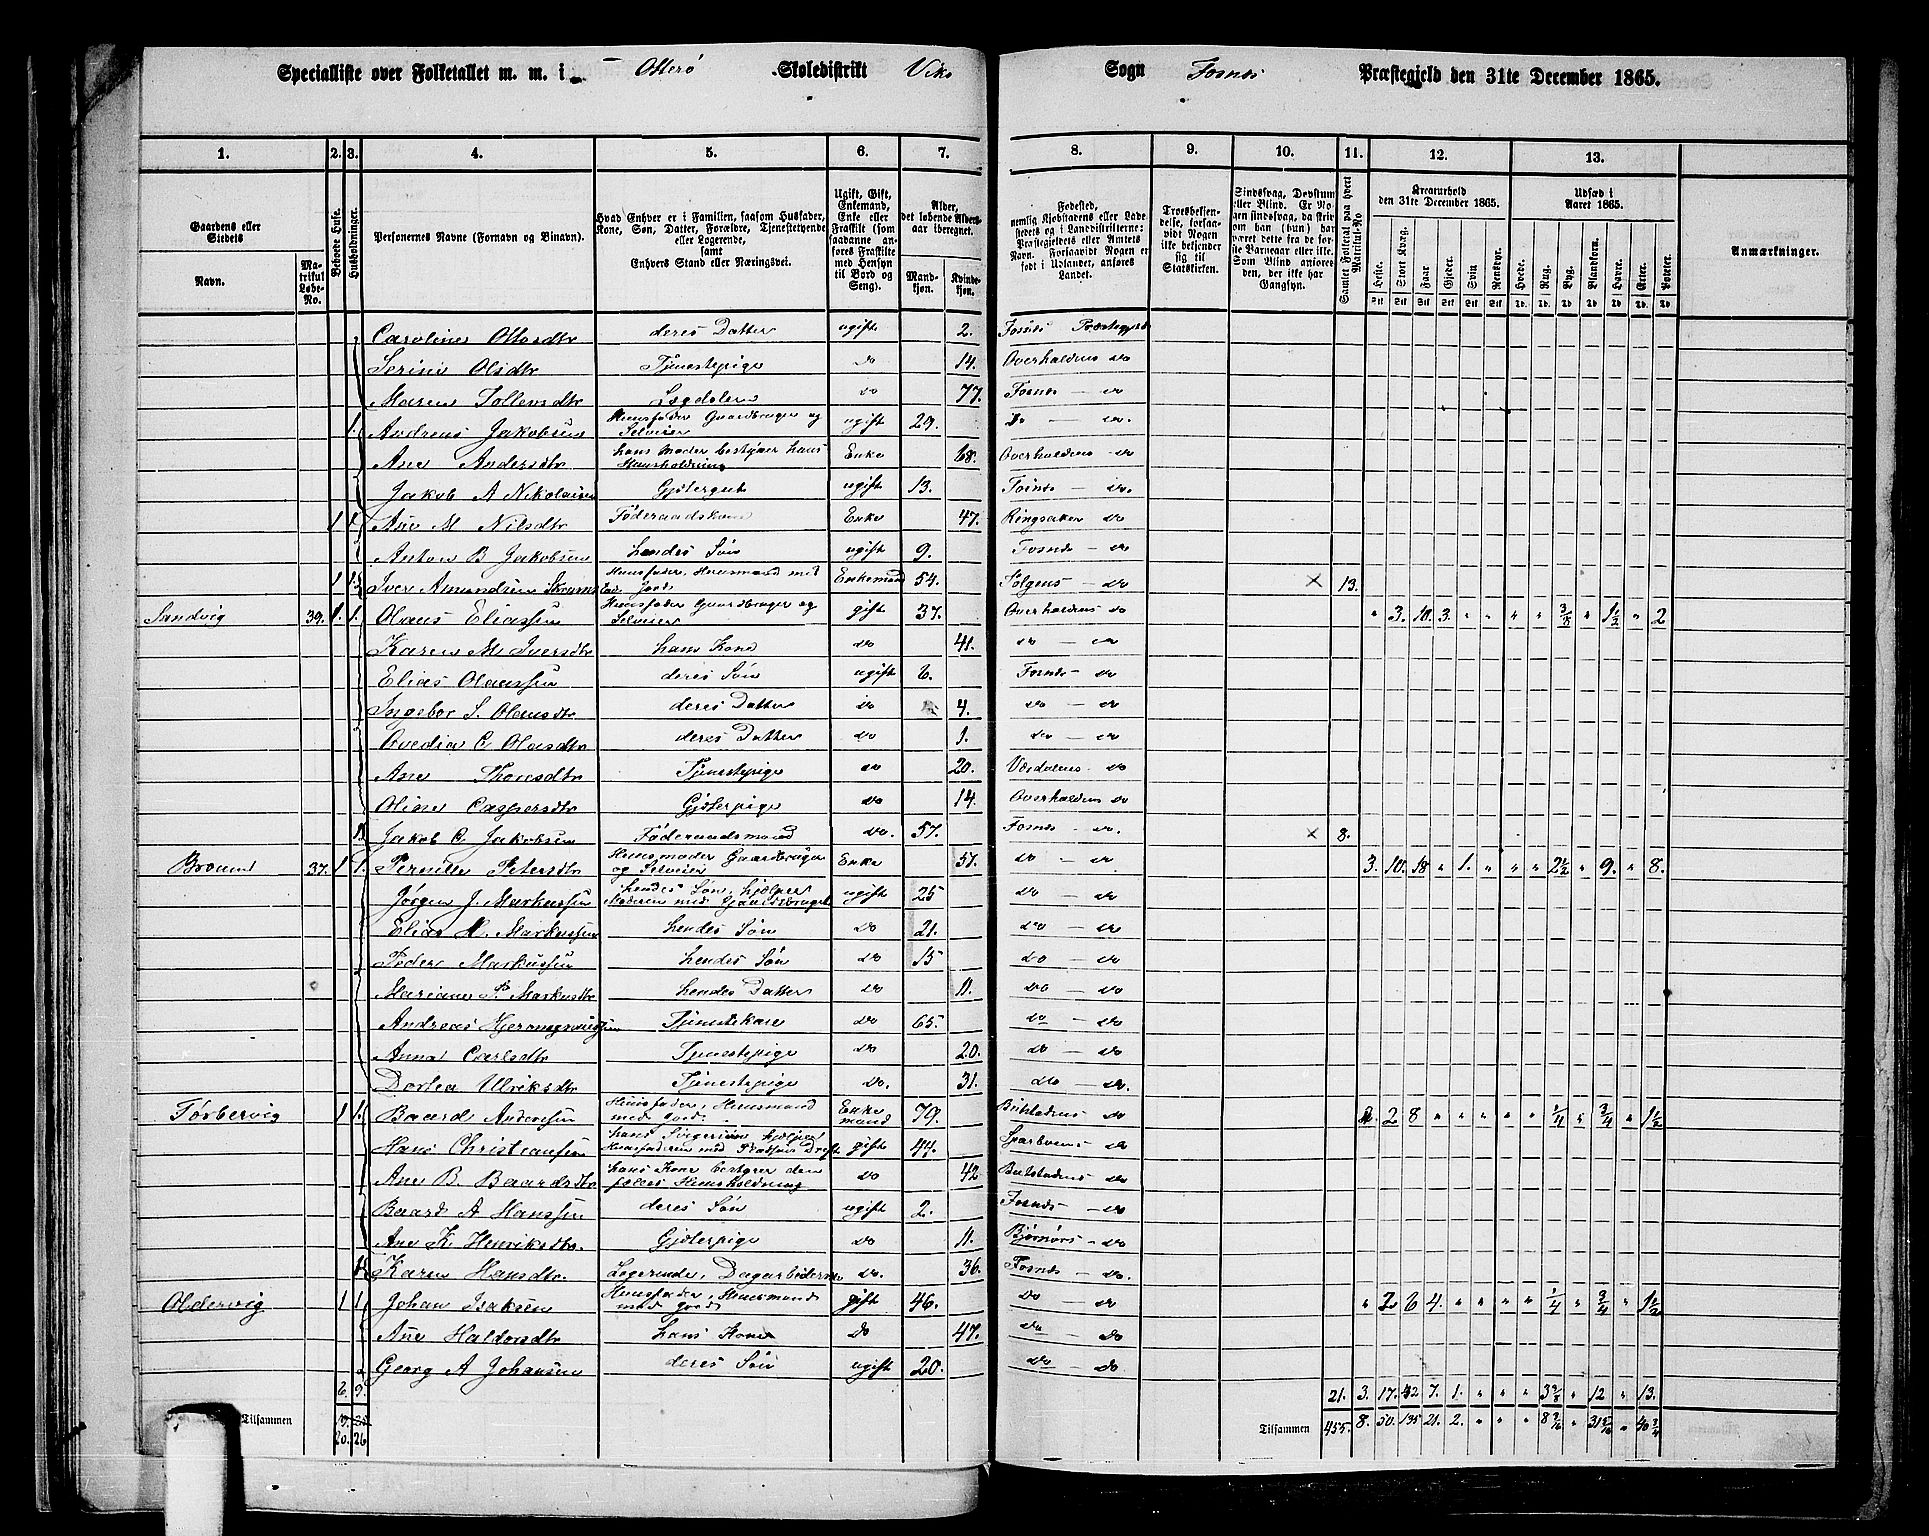 Specialliste over Folketallet m. m. i Otterö Skoledistrikt Viks Sogn Fosnes Præstegjeld den 31te December 1865.
1. 2. 3. 4. 5. 6. 7. 8. 9. 10. 11. 12. 13.
Gaardens eller Stedets Navn. Matrikul Løbe-No. Beboede Huse. Husholdninger. Personernes Navne (Fornavn og Binavn).
Hvad Enhver er i Familien, saasom Husfader, Kone, Søn, Datter, Forældre, Tjenestetyende eller Logerende, samt Enhvers Stand eller Næringsvei.
Ugift, Gift, Enkemand, Enke eller Fraskilt (som saadanne anføres Fraskilte med Hensyn til Bord og Seng).
Alder, det løbende Alders-aar iberegnet. Mandkjøn. Kvindekjøn.
Kreaturhold den 31te December 1865. Udsæd i Aaret 1865. Anmærkninger.
Caroline Ottosdtr deres Datter ugift 2. Fosnes Præstegjeld
Serine Olsdtr Tjenestepige do 14. Overhaldens do
Maren Tollevsdtr Lægdslem do 77. Fosnes do
1. Andreas Jakobsen Huusfader Gaardbruger og Selveier ugift 29. Do do.
Ane Andersdtr hans Moder bestyrer hans Huusholdning Enke 68. Overhaldens do
Jakob A Nikolaisen Gjætergut ugift 13. Fosnes do.
1 1. Ane M. Nilsdtr Föderaadskone Enke 47. Ringsaker do
Anton B Jakobsen hendes Sön ugift 9. Fosnes do
1 1. Iver Amundsen Huusfader, Huusmand med Jord Enkemand 54. do × 13.
Sandvig 39. 1. 1. Olaus Eliassen Huusfader Gaardbruger og Selveier gift 37. Overhaldens do " 3. 10. 3. " " " " 3/8 " 1 1/2 " 2
Karen M Iversdtr hans Kone do 41. do do
Elias Olaussen deres Sön ugift 6. Fosnes do
Ingebor S. Olausdtr deres Datter do 4. do do
C Olausdtr deres Datter do 1. do do
Ane Tjenestepige do 20. Værdalens do
Oline Caspersdtr Gjæterpige do 14. Overhaldens do
1. Jakob C Jakobsen Föderaadsmand do. 57. Fosnes do. × 8.
37. 1 1. Pernille Petersdtr Huusmoder Gaardbruger og Selveier Enke 57. do do 3. 10. 18 " 1. " " " 2 1/2 " 9. " 8.
Jörgen J. Markussen hendes Sön, hjælper Moderen med Gaardsbruget ugift 25 do do
Elias M. Markussen hendes Sön do 21. do do
Peder Markussen hendes Sön do 15 do do
Mariane P. Markusdtr hendes Datter do 11. do do
Andreas Tjenestekarl do 65. do do
Anna Carlsdtr Tjenestepige do 20. do do
Dortea Ulriksdtr Tjenestepige do. 31. do do
Torbervig 1 1. Baard Andersen Huusfader, Huusmand med Jord Enkemand 79. do 2 8 " " " " " 1/4 " 3/4 " 1 1/2
Hans Christiansen hans Svigersön hjælper Huusfaderen med gift 44. do
Ane B. Baardsdtr hans Kone bestyrer den fælles Huusholdning do 42 do
Baard A Hanssen deres Sön ugift 2. Fosnes do
Ane K Henriksdtr. Gjæterpige do 11. Bjørnørs do
Karen Hansdtr. Logerende, do. 36. Fosnes do.
Oldervig 1 1. Johan Isaksen Huusfader, Huusmand med Jord gift 46. do do " 2 6 4. " " " " 1/4 " 3/4 " 1 1/2
Ane Haldorsdtr hans Kone do 47. do do
Georg A Johansen deres Sön ugift 20. do do
6. 9. 21. 3. 17. 42 7. 1. " " " 3 " 12 " 13.
Tilsammen 20. 26 Tilsammen 455. 8. 50. 135 21. 2. " " " 8 " 31 " 40 3/4